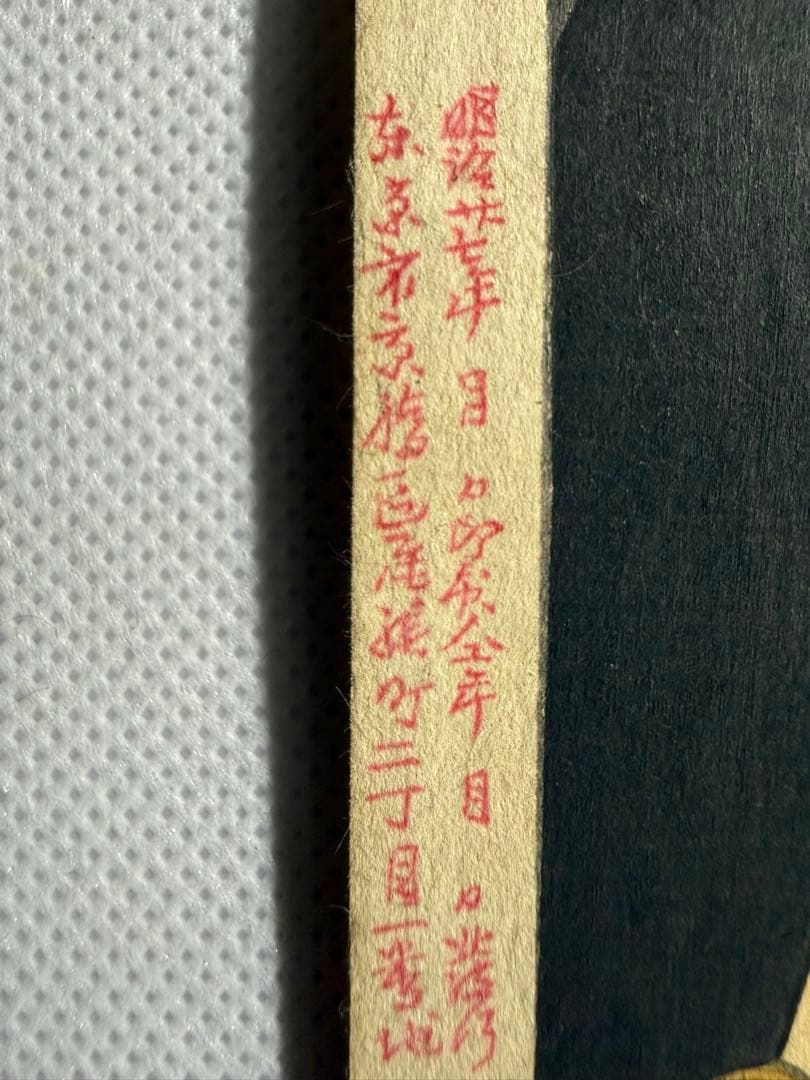 明治廿七年 月 日印刷仝年 月 日発行
東京市京橋区南槙町三丁目一番地